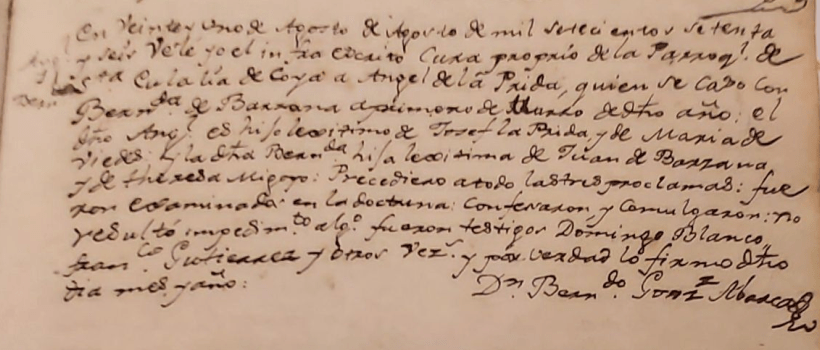 En Veinte y uno de Agosto de Agosto de mil setecientos setenta
y seis Vele yo el infraescrito Cura proprio de la Parroql. de
Sta Eulalia de Coya a Angel de la Prida, quien se caso con
Bernda. de Barzana a primero de Marzo de dho año: el
dho Angl. es hijo lexitimo de Josef la Prida y de Maria de
Viedes: y la dha Bernda hija lexitima de Juan de Barzana
y de theresa Migoyo: Precediero a todo las tres proclamas: fue
ron examinados en la doctrina: Confesaron y Comulgaron: no
resultó impedimto algo. fueron testigos Domingo Blanco,
Franco. Gutierrez y otros Vezs. y por verdad lo firmo dho
dia mes y año:
Dn. Berndo. Gonz